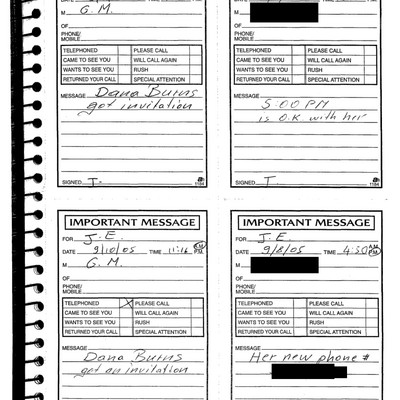 M G. M.
OF
PHONE/
MOBILE
TELEPHONED PLEASE CALL
CAME TO SEE YOU WILL CALL AGAIN
WANTS TO SEE YOU RUSH
RETURNED YOUR CALL SPECIAL ATTENTION
MESSAGE Dana Burns
got invitation
SIGNED T.
1184
M
OF
PHONE/
MOBILE
TELEPHONED PLEASE CALL
CAME TO SEE YOU WILL CALL AGAIN
WANTS TO SEE YOU RUSH
RETURNED YOUR CALL SPECIAL ATTENTION
MESSAGE
5:00 PM
is O.K with her
SIGNED T.
1184
IMPORTANT MESSAGE
FOR J.E.
DATE 9/10/05 TIME 11:16 AM PM
M G. M.
OF
PHONE/
MOBILE
TELEPHONED X PLEASE CALL
CAME TO SEE YOU WILL CALL AGAIN
WANTS TO SEE YOU RUSH
RETURNED YOUR CALL SPECIAL ATTENTION
MESSAGE
Dana Burns
got an invitation
IMPORTANT MESSAGE
FOR J.E.
DATE 9/8/05 TIME 4:50 AM PM
M
OF
PHONE/
MOBILE
TELEPHONED PLEASE CALL
CAME TO SEE YOU WILL CALL AGAIN
WANTS TO SEE YOU RUSH
RETURNED YOUR CALL SPECIAL ATTENTION
MESSAGE
Her new phone #